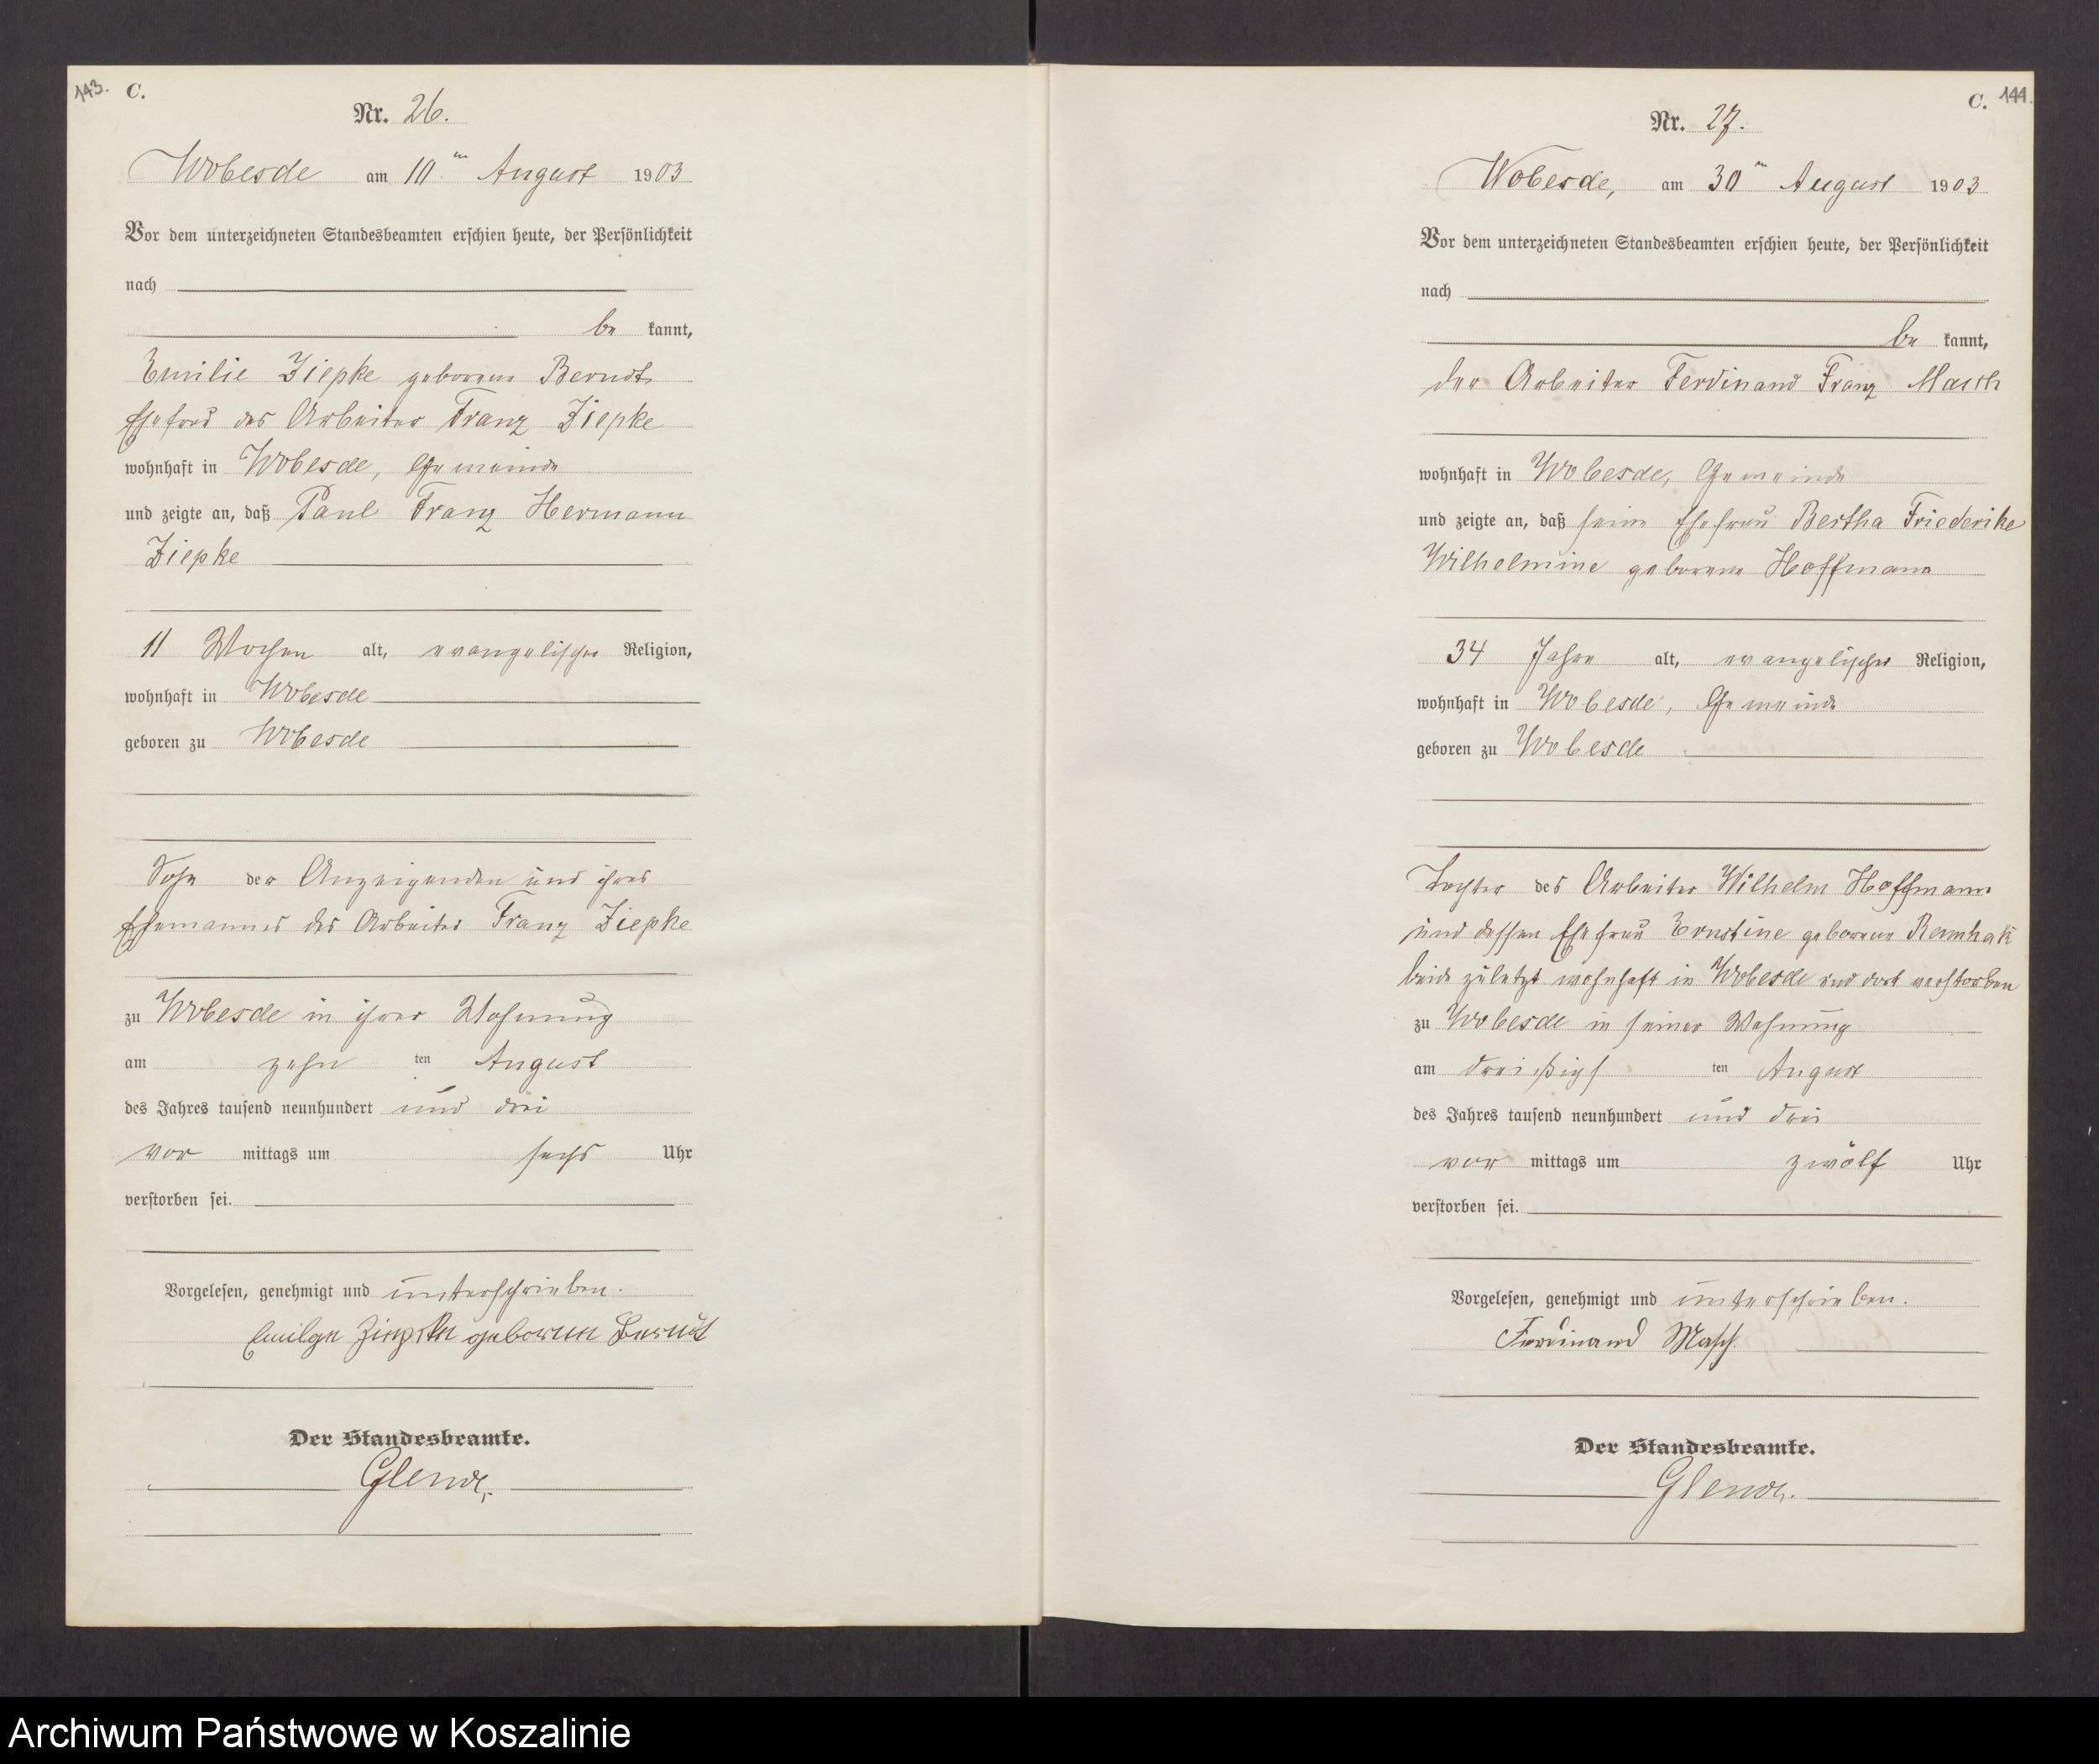 143. C.
Nr. 26.
Wobesde am 10ten August 1903
Vor dem unterzeichneten Standesbeamten erschien heute, der Persönlichkeit
nach
be kannt,
Emilie Ziepke geborene Berndt
Ehefrau des Arbeiter Franz Ziepke
wohnhaft in Wobesde, Gemeinde
und zeigte an, daß Paul Franz Hermann
Ziepke
11 Wochen alt, evangelischer Religion,
wohnhaft in Wobesde
geboren zu Wobesde
Sohn der Anzeigenden und ihres
Ehemannes des Arbeiter Franz Ziepke
zu Wobesde in ihrer Wohnung
am zehn ten August
des Jahres tausend neunhundert und drei
vor mittags um sechs Uhr
verstorben sei.
Vorgelesen, genehmigt und unterschrieben.
Ziepke geborene Berndt
Der Standesbeamte.
C. 144.
Nr. 27.
Wobesde, am 30ten August 1903
Vor dem unterzeichneten Standesbeamten erschien heute, der Persönlichkeit
nach
be kannt,
der Arbeiter Ferdinand Franz Masch
wohnhaft in Wobesde, Gemeinde
und zeigte an, daß seine Ehefrau Bertha Friederike
Wilhelmine geborene Hoffmann
34 Jahre alt, evangelischer Religion,
wohnhaft in Wobesde, Gemeinde
geboren zu Wobesde
Tochter des Arbeiter Wilhelm Hoffmann
und dessen Ehefrau Ernstine geborene
beide zuletzt wohnhaft in Wobesde und dort verstorben
zu Wobesde in seiner Wohnung
am dreißigs ten August
des Jahres tausend neunhundert und drei
vor mittags um zwölf Uhr
verstorben sei.
Vorgelesen, genehmigt und unterschrieben.
Ferdinand Masch.
Der Standesbeamte.
Archiwum Państwowe w Koszalinie